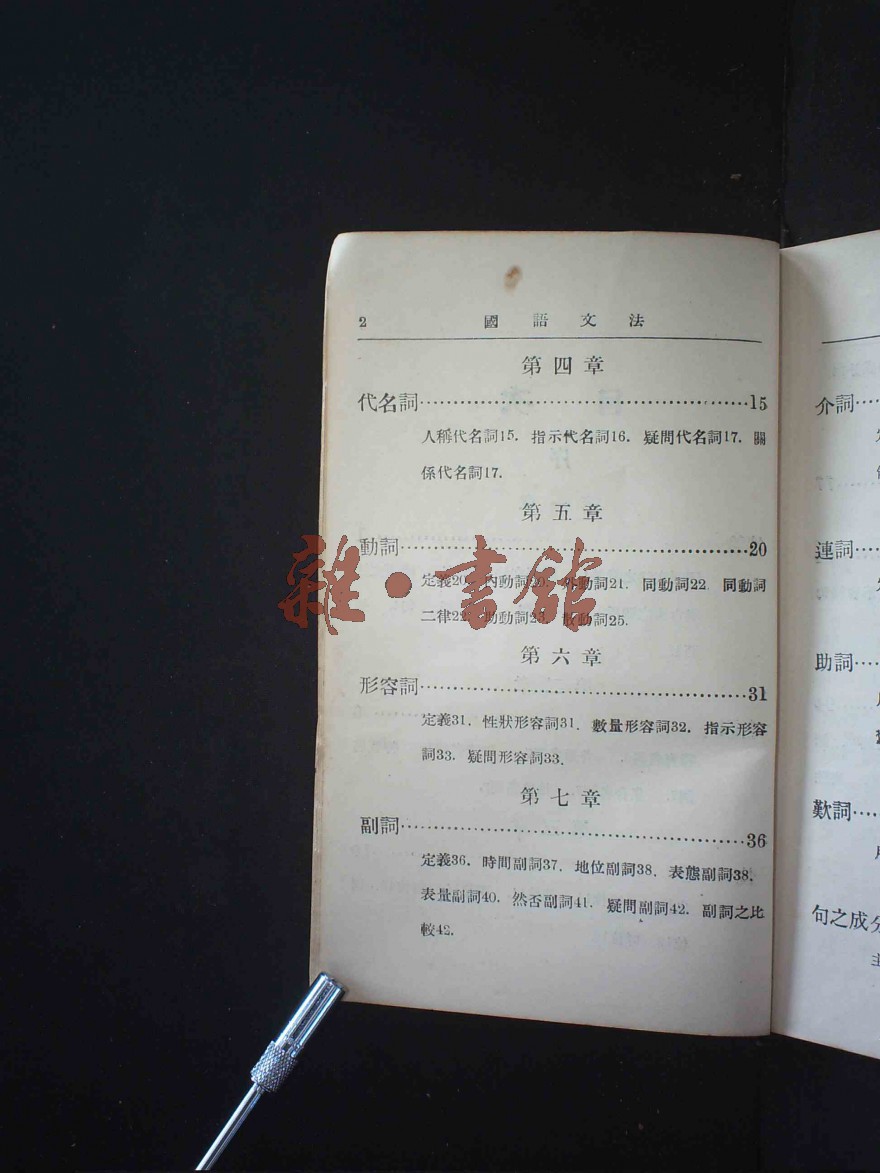 2 國語文法
第四章
代名詞……………………………………15
人稱代名詞15. 指示代名詞16. 疑問代名詞17. 關
係代名詞17.
第五章
動詞……………………………………20
定義20. 內動詞20. 外動詞21. 同動詞22. 同動詞
二律22. 助動詞23. 散動詞25.
第六章
形容詞……………………………………31
定義31. 性狀形容詞31. 數量形容詞32. 指示形容
詞33. 疑問形容詞33.
第七章
副詞……………………………………36
定義36. 時間副詞37. 地位副詞38. 表態副詞38.
表量副詞40. 然否副詞41. 疑問副詞42. 副詞之比
較42.
雜·書館
介詞…
連詞…
助詞…
歎詞…
句之成分
主